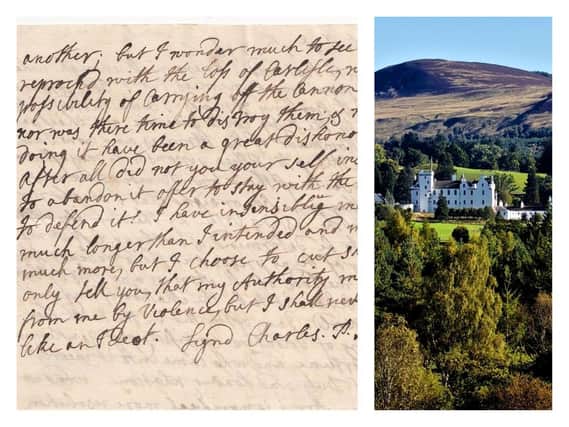 another; but I wonder much to see
reproch'd with the loss of Carlisle,
possibility of Carrying off the Cannon
nor was there time to distroy them, &
doing it have been a great dishono
After all did not you your self in
to abandon it after to stay with the
to defend it? I have insensibly m
much longer than I intended and
much more, but I choose to cut s
only tell you, that my Authority m
from me by Violence, but I shall nev
like an Ideot. Signd Charles. P.